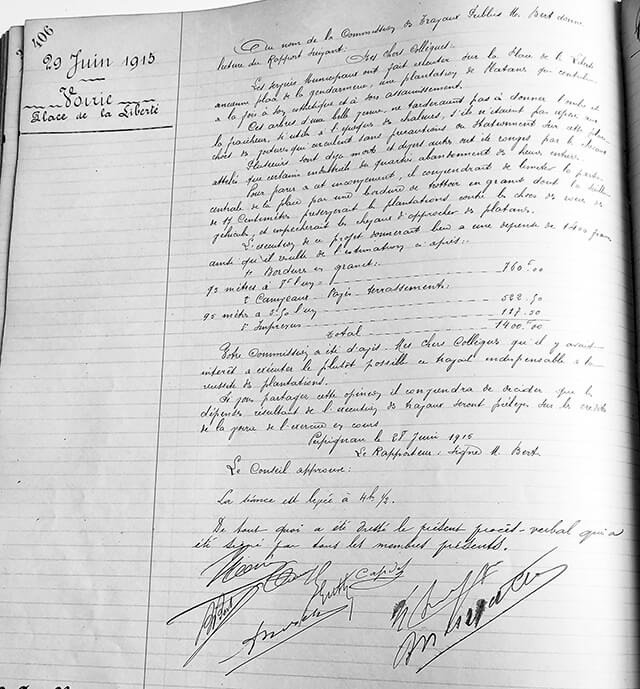 406
29 Juin 1915
Voirie
Place de la Liberté
Au nom de la Commission des Travaux Publics M. Bert donne
lecture du Rapport suivant: Mes Chers Collègues:
Les services Municipaux ont fait exécuter sur la Place de la Liberté
ancienne place de la gendarmerie, une plantation de Platanes qui contribue
à la fois à son esthétique et à son assainissement.
Ces arbres d'une belle venue, ne tarderaient pas à donner l'ombre et
la fraîcheur, si utile à l'époque des chaleurs, s'ils n'étaient pas exposés aux
chocs des voitures qui circulent sans précautions ou stationnent sur cette place.
Plusieurs sont déjà morts et d'autres ont été rongés par les chevaux
attelés que certains industriels du quartier abandonnent des heures entières.
Pour parer à cet inconvénient, il conviendrait de limiter la partie
centrale de la place par une bordure de trottoir en granit dont la saillie
de 17 Centimètres préserverait les plantations contre les chocs des roues de
véhicule, et empêcherait les chevaux d'approcher des platanes.
L'exécution de ce projet donnerait lieu à une dépense de 1400 francs
ainsi qu'il résulte de l'estimation ci après:
1° Bordure en granit:
95 mètres à 8f l'un 760f.00
2° Caniveaux Pavés terrassements:
95 mètres à 5f.50 l'un 522.50
3° Imprévus 117.50
Total 1400f.00
Votre Commission a été d'avis Mes Chers Collègues qu'il y avait
intérêt à exécuter le plutôt possible ce travail indispensable à la
réussite des plantations.
Si vous partagez cette opinion il conviendra de décider que la
dépense résultant de l'exécution des travaux seront prélevés sur les crédits
de la voirie de l'exercice en cours
Perpignan le 28 Juin 1915
Le Rapporteur: signé M. Bert.
Le Conseil approuve:
La séance est levée à 4h ½.
De tout quoi a été dressé le présent procès-verbal qui a
été signé par tous les membres présents.